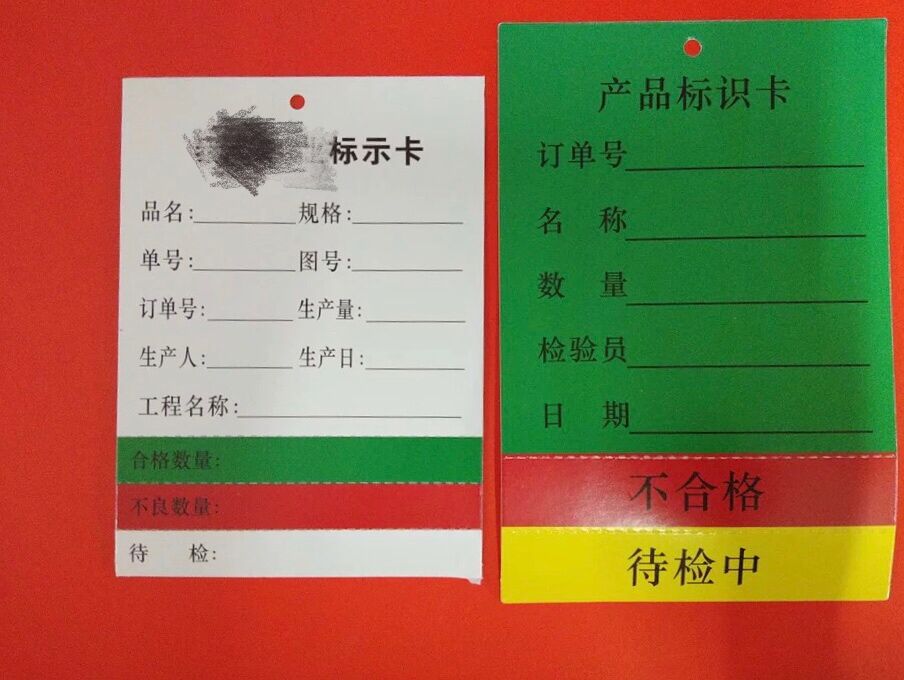 标示卡
品名: 规格:
单号: 图号:
订单号: 生产量:
生产人: 生产日:
工程名称:
合格数量:
不良数量:
待 检:
产品标识卡
订单号
名 称
数 量
检验员
日 期
不合格
待检中